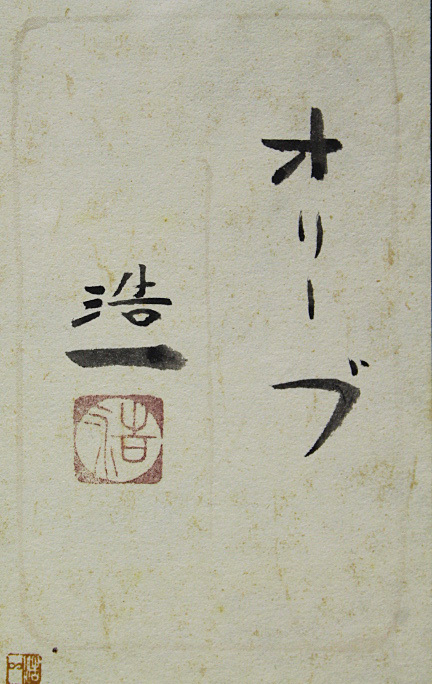 オリーブ
浩一
浩